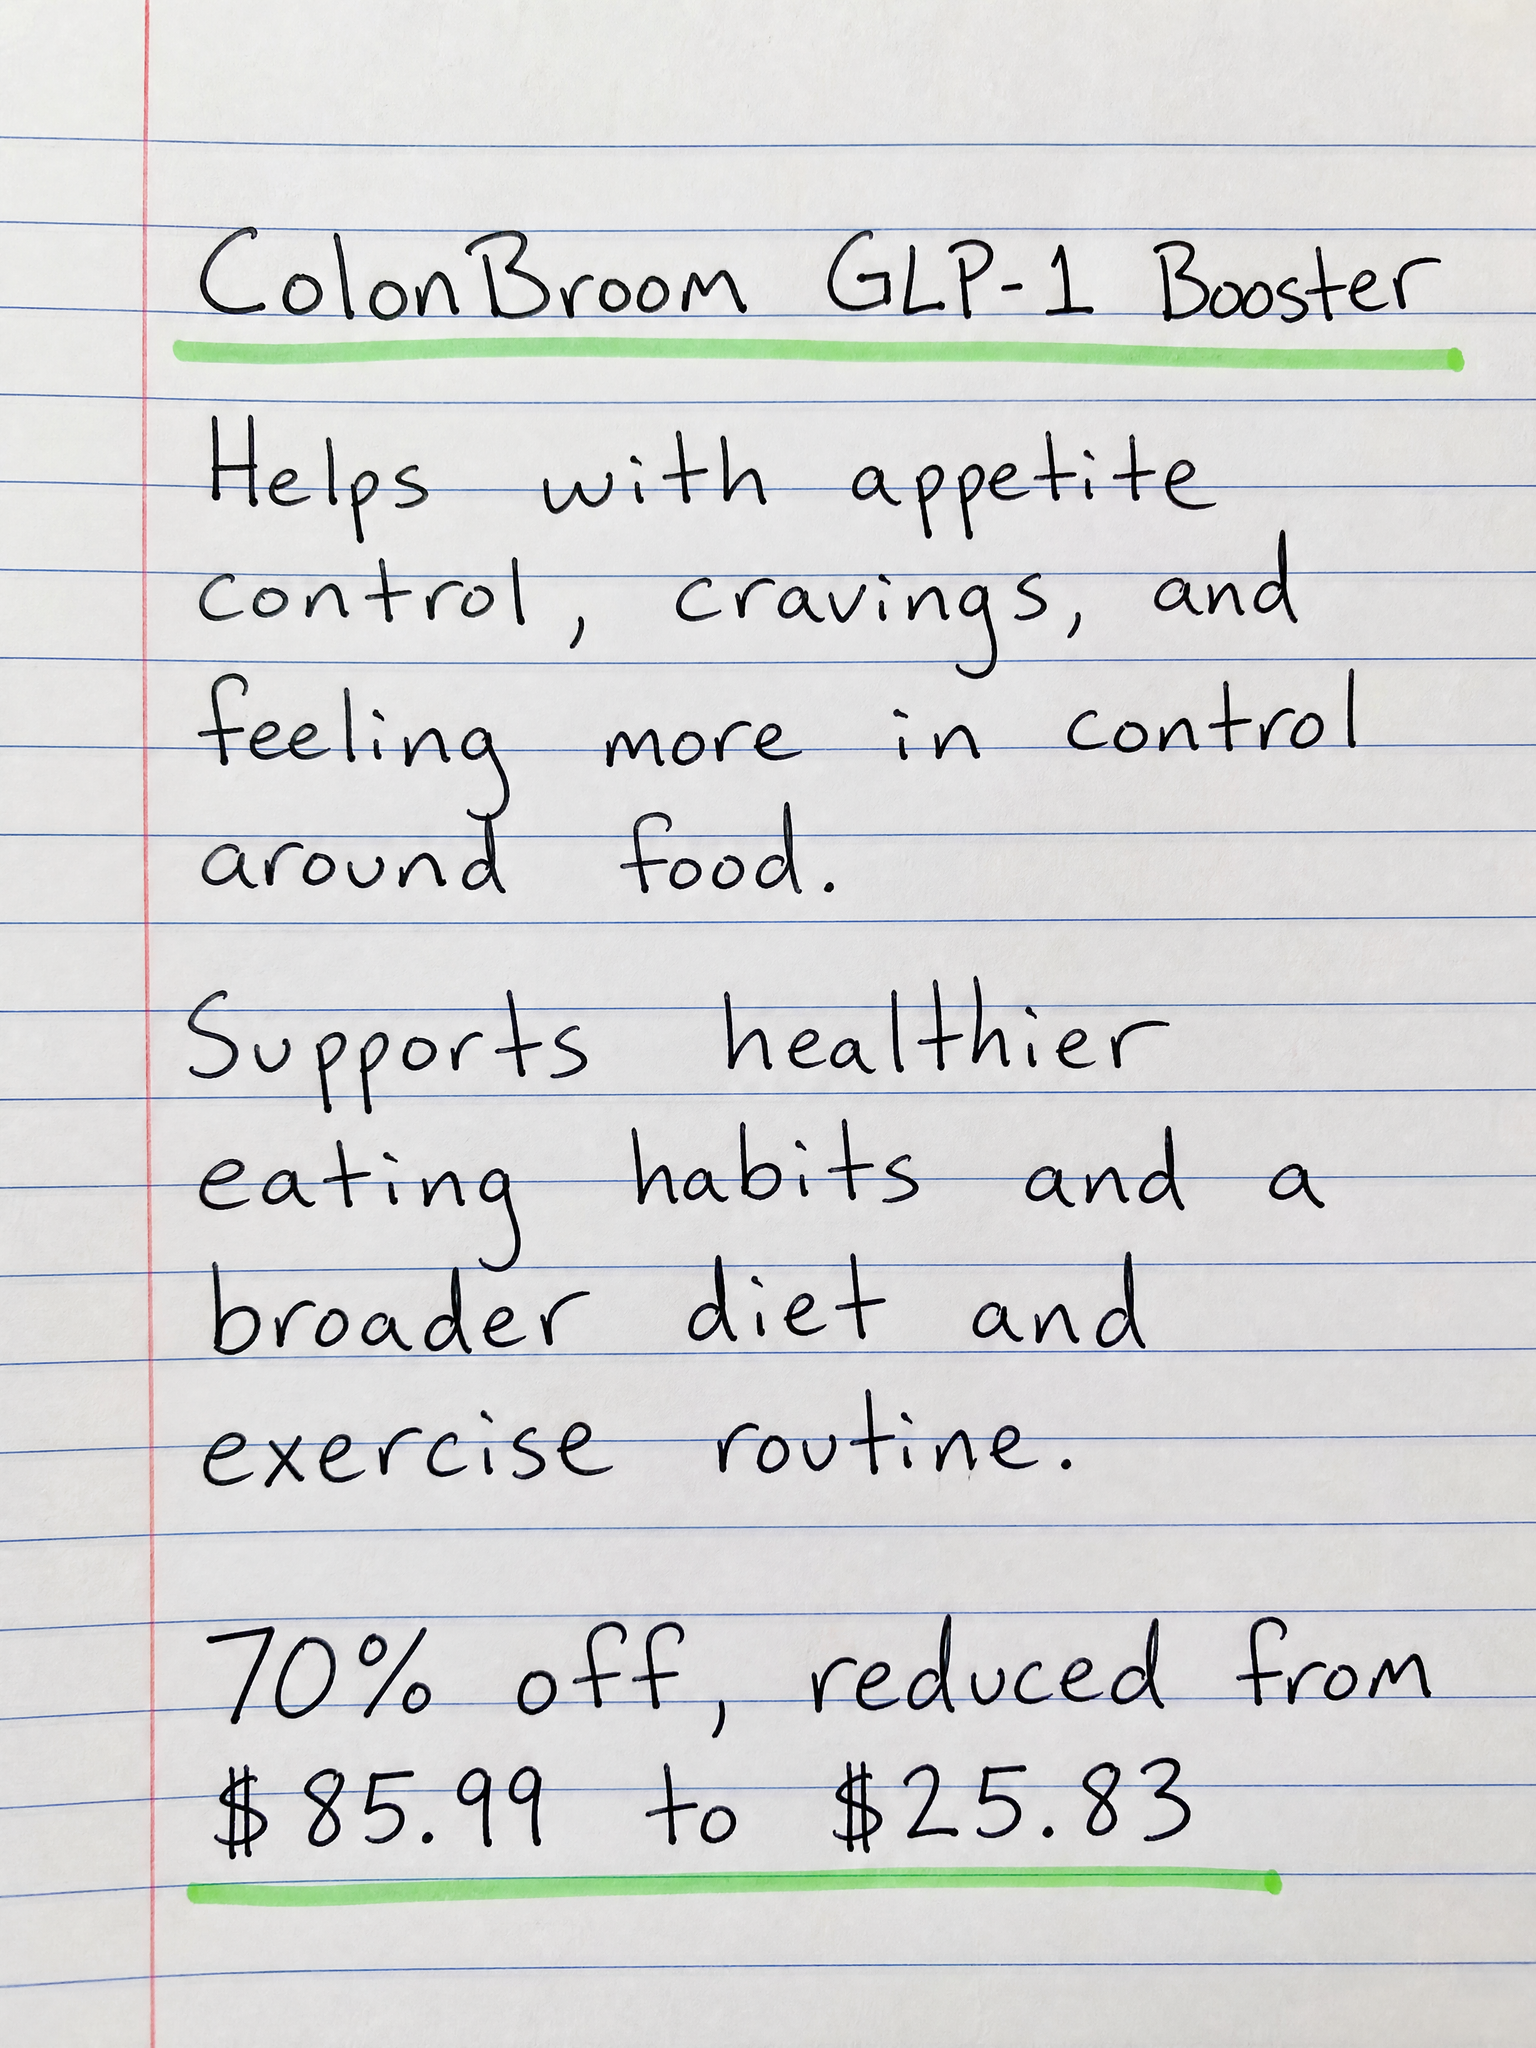 ColonBroom GLP-1 Booster
Helps with appetite
control, cravings, and
feeling more in control
around food.
Supports healthier
eating habits and a
broader diet and
exercise routine.
70% off, reduced from
$85.99 to $25.83